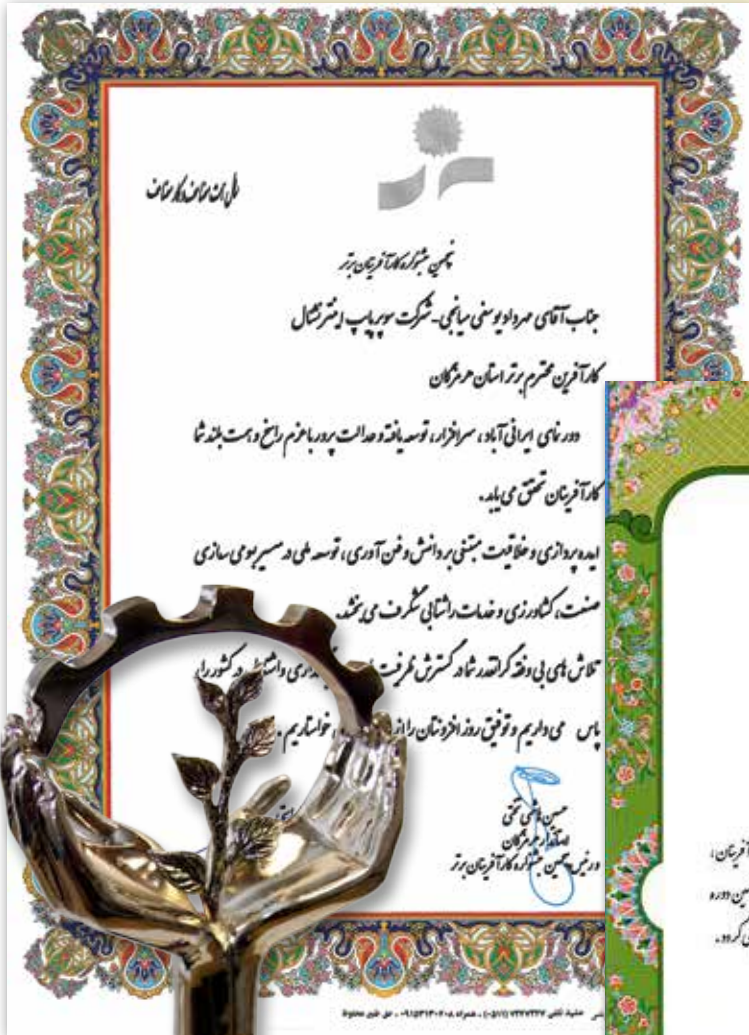 پنجمین جشنواره کارآفرینان برتر
جناب آقای مهرداد یوسفی میانجی - شرکت سوپر پایپ اینترنشنال
کارآفرین محترم برتر استان هرمزگان
دورنمای ایرانی آباد، سرافراز، توسعه یافته و عدالت پرور با عزم راسخ و همت بلند شما
کارآفرینان تحقق می یابد.
ایده پردازی و خلاقیت مبتنی بر دانش و فن آوری، توسعه ملی در مسیر بومی سازی
صنعت، کشاورزی و خدمات را شتابی شگرف می بخشد.
تلاش های بی وقفه گرانقدر شما در گسترش ظرفیت در کشور را
پاس می داریم و توفیق روز افزونتان را از خواستاریم.
حسین هاشمی تختی
استاندار هرمزگان
و رئیس پنجمین جشنواره کارآفرینان برتر
آفرینان،
دوره